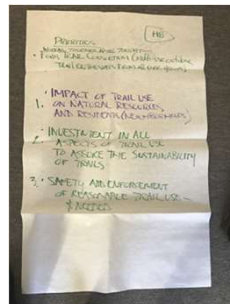 HB
PRIORITIES
• FORM TRAIL
• IMPACT OF TRAIL USE
1. ON NATURAL RESOURCES
AND RESIDENTS (NEIGHBORHOODS)
2. INVESTMENT IN ALL
ASPECTS OF TRAIL USE
TO ASSURE THE SUSTAINABILITY
OF TRAILS
3. • SAFETY AND ENFORCEMENT
OF REASONABLE TRAIL USE -
& NEEDS